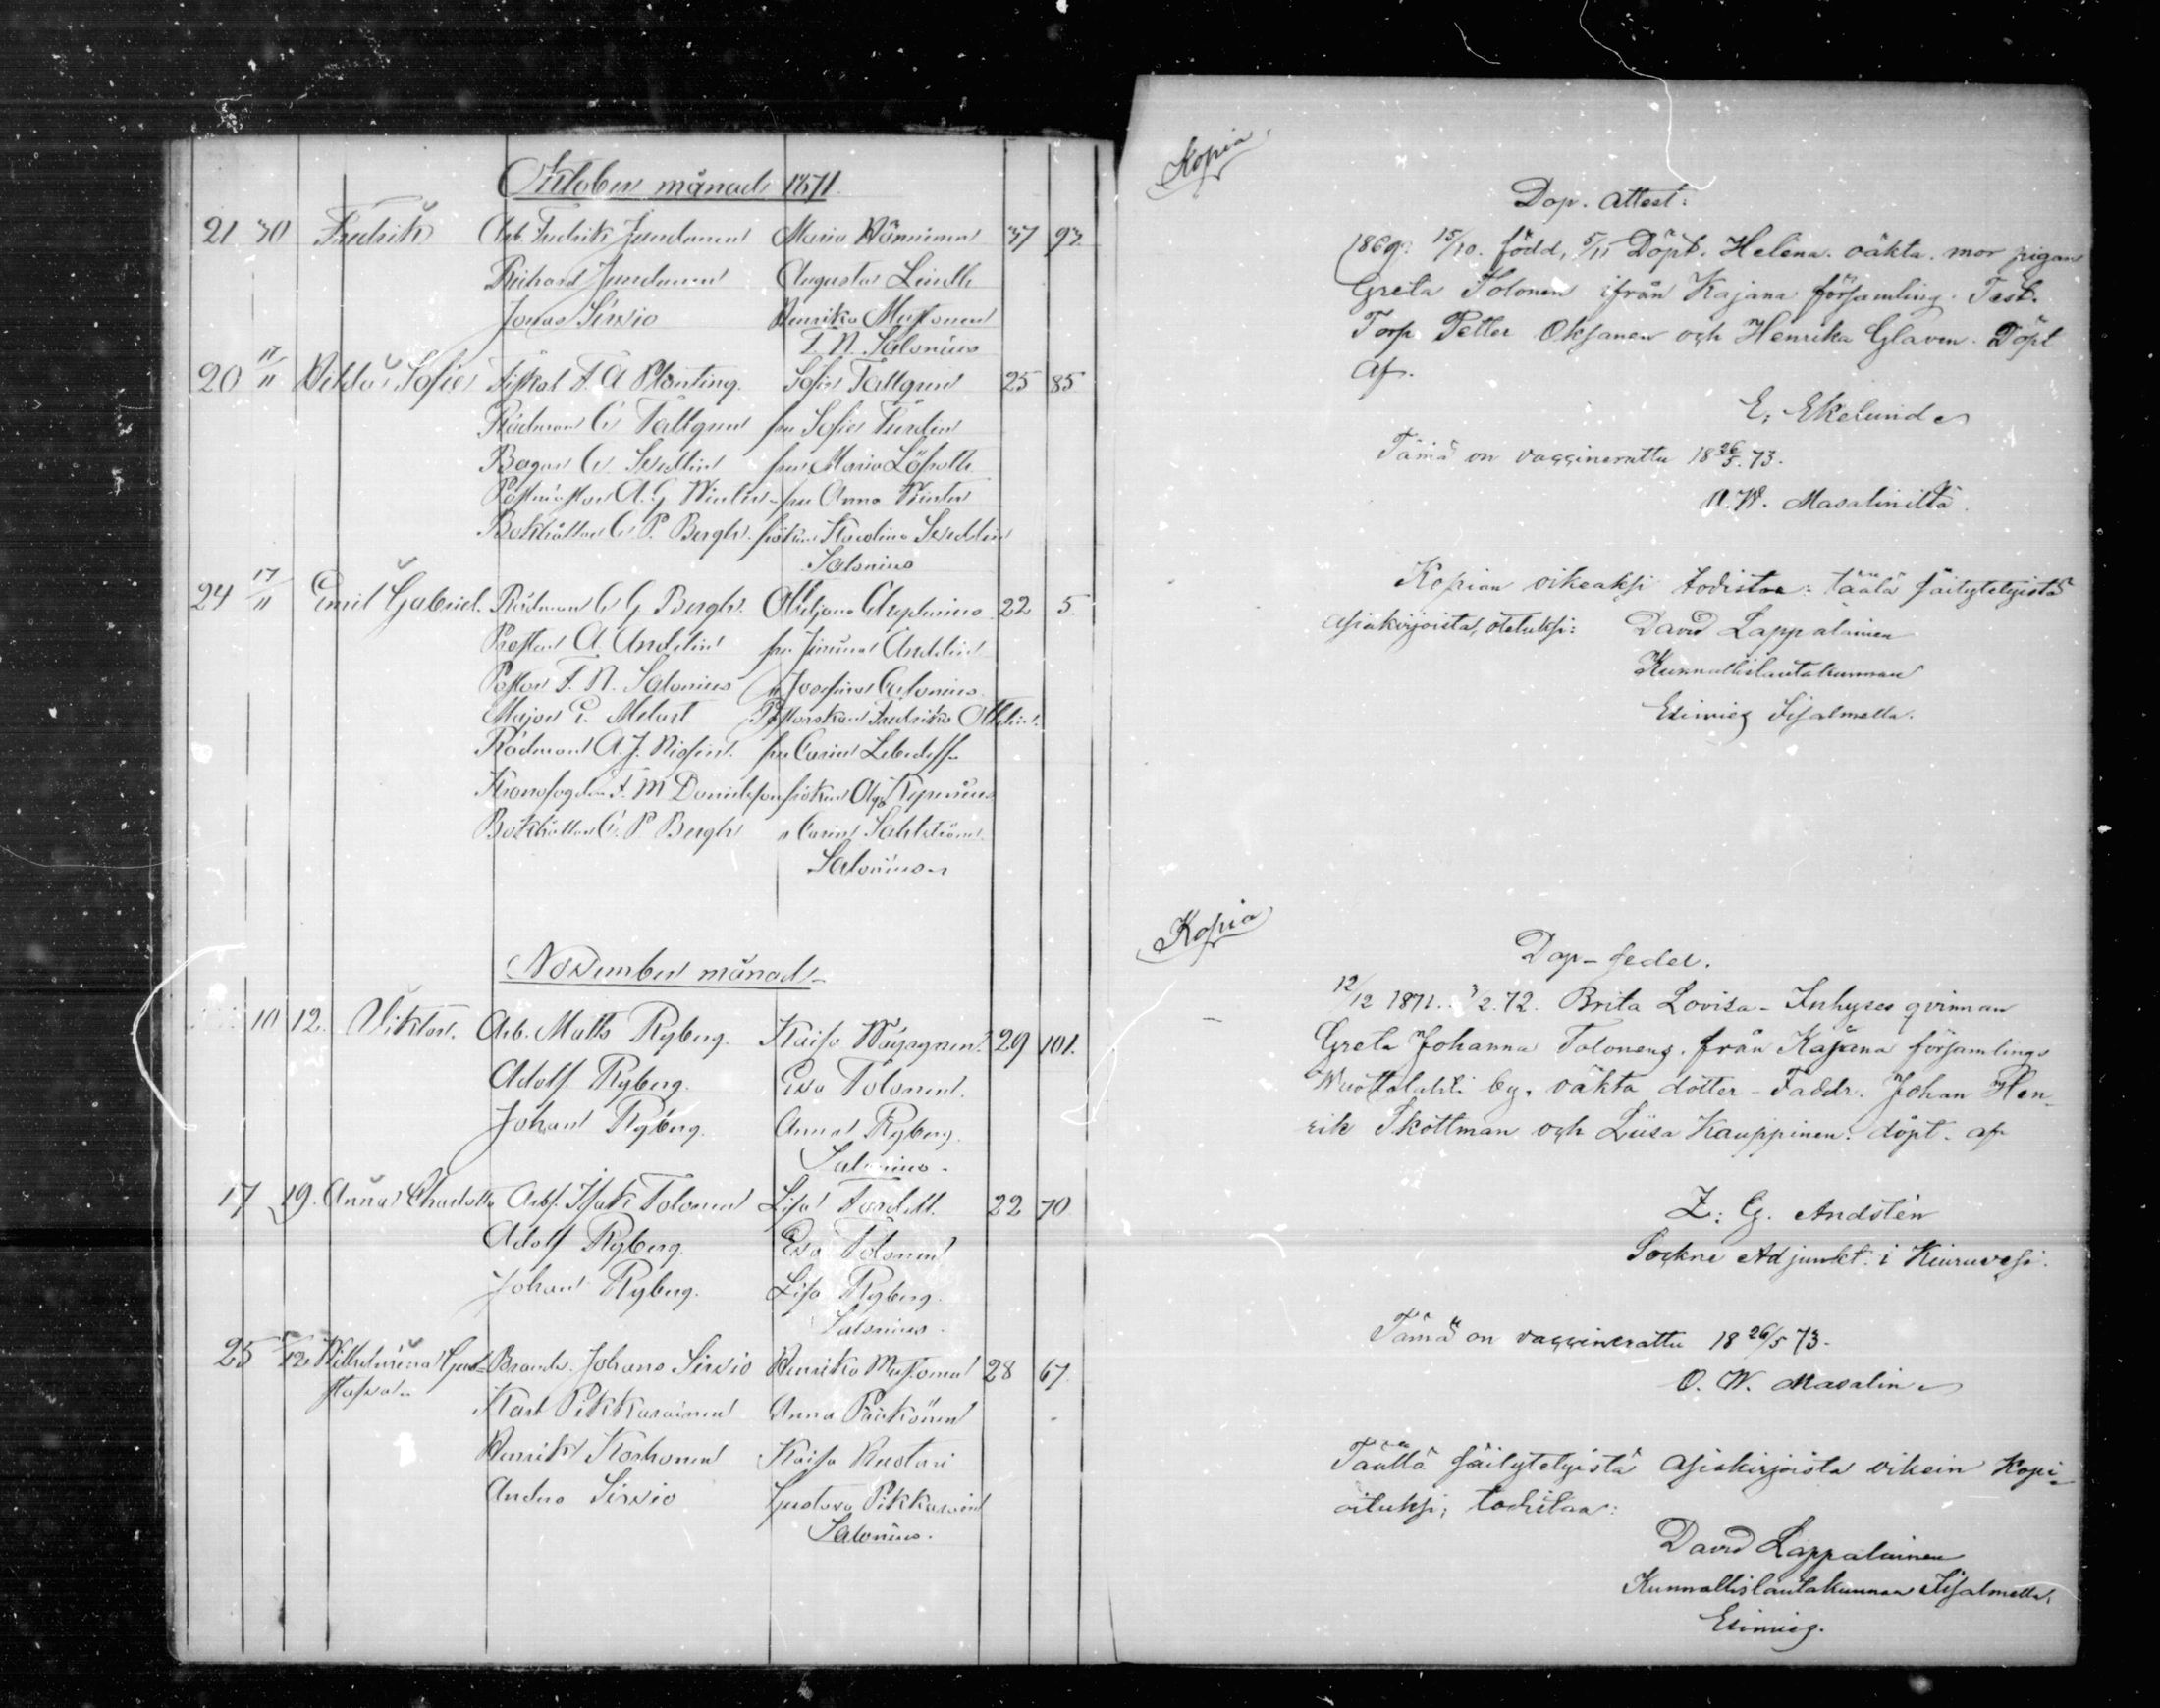 Oktober månad 1871.
21 30 Fredrik Arb. Fredrik Jundunen Maria Hänninen 37 93.
Richard Jundunen Augusta Lindh
Jonas Sirviö Henrika Mustonen
F. N. Salonius
20 17/11 Hilda Sofia Fiskal F. A. Planting. Sofia Tallgren 25 85
Rådman C. Tallgren fru Sofia
Bagar C. fru Maria
Postmästar A. G. Winter fru Anna Winter
Bokhållar C. P. Bergh. fröken Karolina
Salonius
24 17/11 Emil Gabriel. Rådman C. G. Bergh. 22 5.
Prosten A. Andelin fru Andelin
Pastor F. N. Salonius " Josefina Calonius
Major E. Melart Fredrika
Rådman A. J. fru Carin Lebedeff
Kronofogden F. M. Danielson fröken Olga
Bokhållar C. P. Bergh " Carin Sahlström
Salonius
November månad
10 12. Viktor. Arb. Matts Ryberg. Kaisa 29 101.
Adolf Ryberg. Eva Tolonen.
Johan Ryberg. Anna Ryberg.
Salonius.
17 19. Anna Charlotta Arb. Isak Tolonen Lisa 22 70
Adolf Ryberg. Eva Tolonen
Johan Ryberg. Lisa Ryberg.
Salonius.
25 /12 Wilhelmina Gus- Johan Sirviö Henrika Mustonen 28 67.
tafva Karl Pikkarainen Anna Pääkönen
Henrik Korhonen Kaisa Rustari
Anders Sirviö Gustava Pikkarain
Salonius.
Kopia
Dop. attest:
1869. 15/10. född, 5/11 Döpt. Helena. oäkta. mor pigan
Greta Tolonen ifrån Kajana församling. Test.
Torp. Petter Oksanen och Henrika Glaven. Döpt
af.
E. Ekelund
Tämä on vaccinerattu 18 26/5. 73.
O. W. Masalinilta.
Kopian oikeaksi todistaa: täälä säilytetyistä
asiakirjoista, otetuksi: David Lappalainen
Kunnallislautakunnan
Esimies Iisalmella.
Kopia
Dop-sedel.
12/12 1871. 3/2. 72. Brita Lovisa - Inhyses qvinnan
Greta Johanna Tolonens. från Kajana församlings
Wuottolahti by, oäkta dotter - Faddr. Johan Hen-
rik Skottman och Liisa Kauppinen. döpt. af
Z: G. Andstén
Sockne Adjunkt. i Kiuruvesi.
Tämä on vaccinerattu 18 26/5 73.
O. W. Masalin
Täällä säilytetyistä asiakirjoista oikein kopi-
oituksi; todistaa:
David Lappalainen
Kunnallislautakunnan Iisalmella,
Esimies.